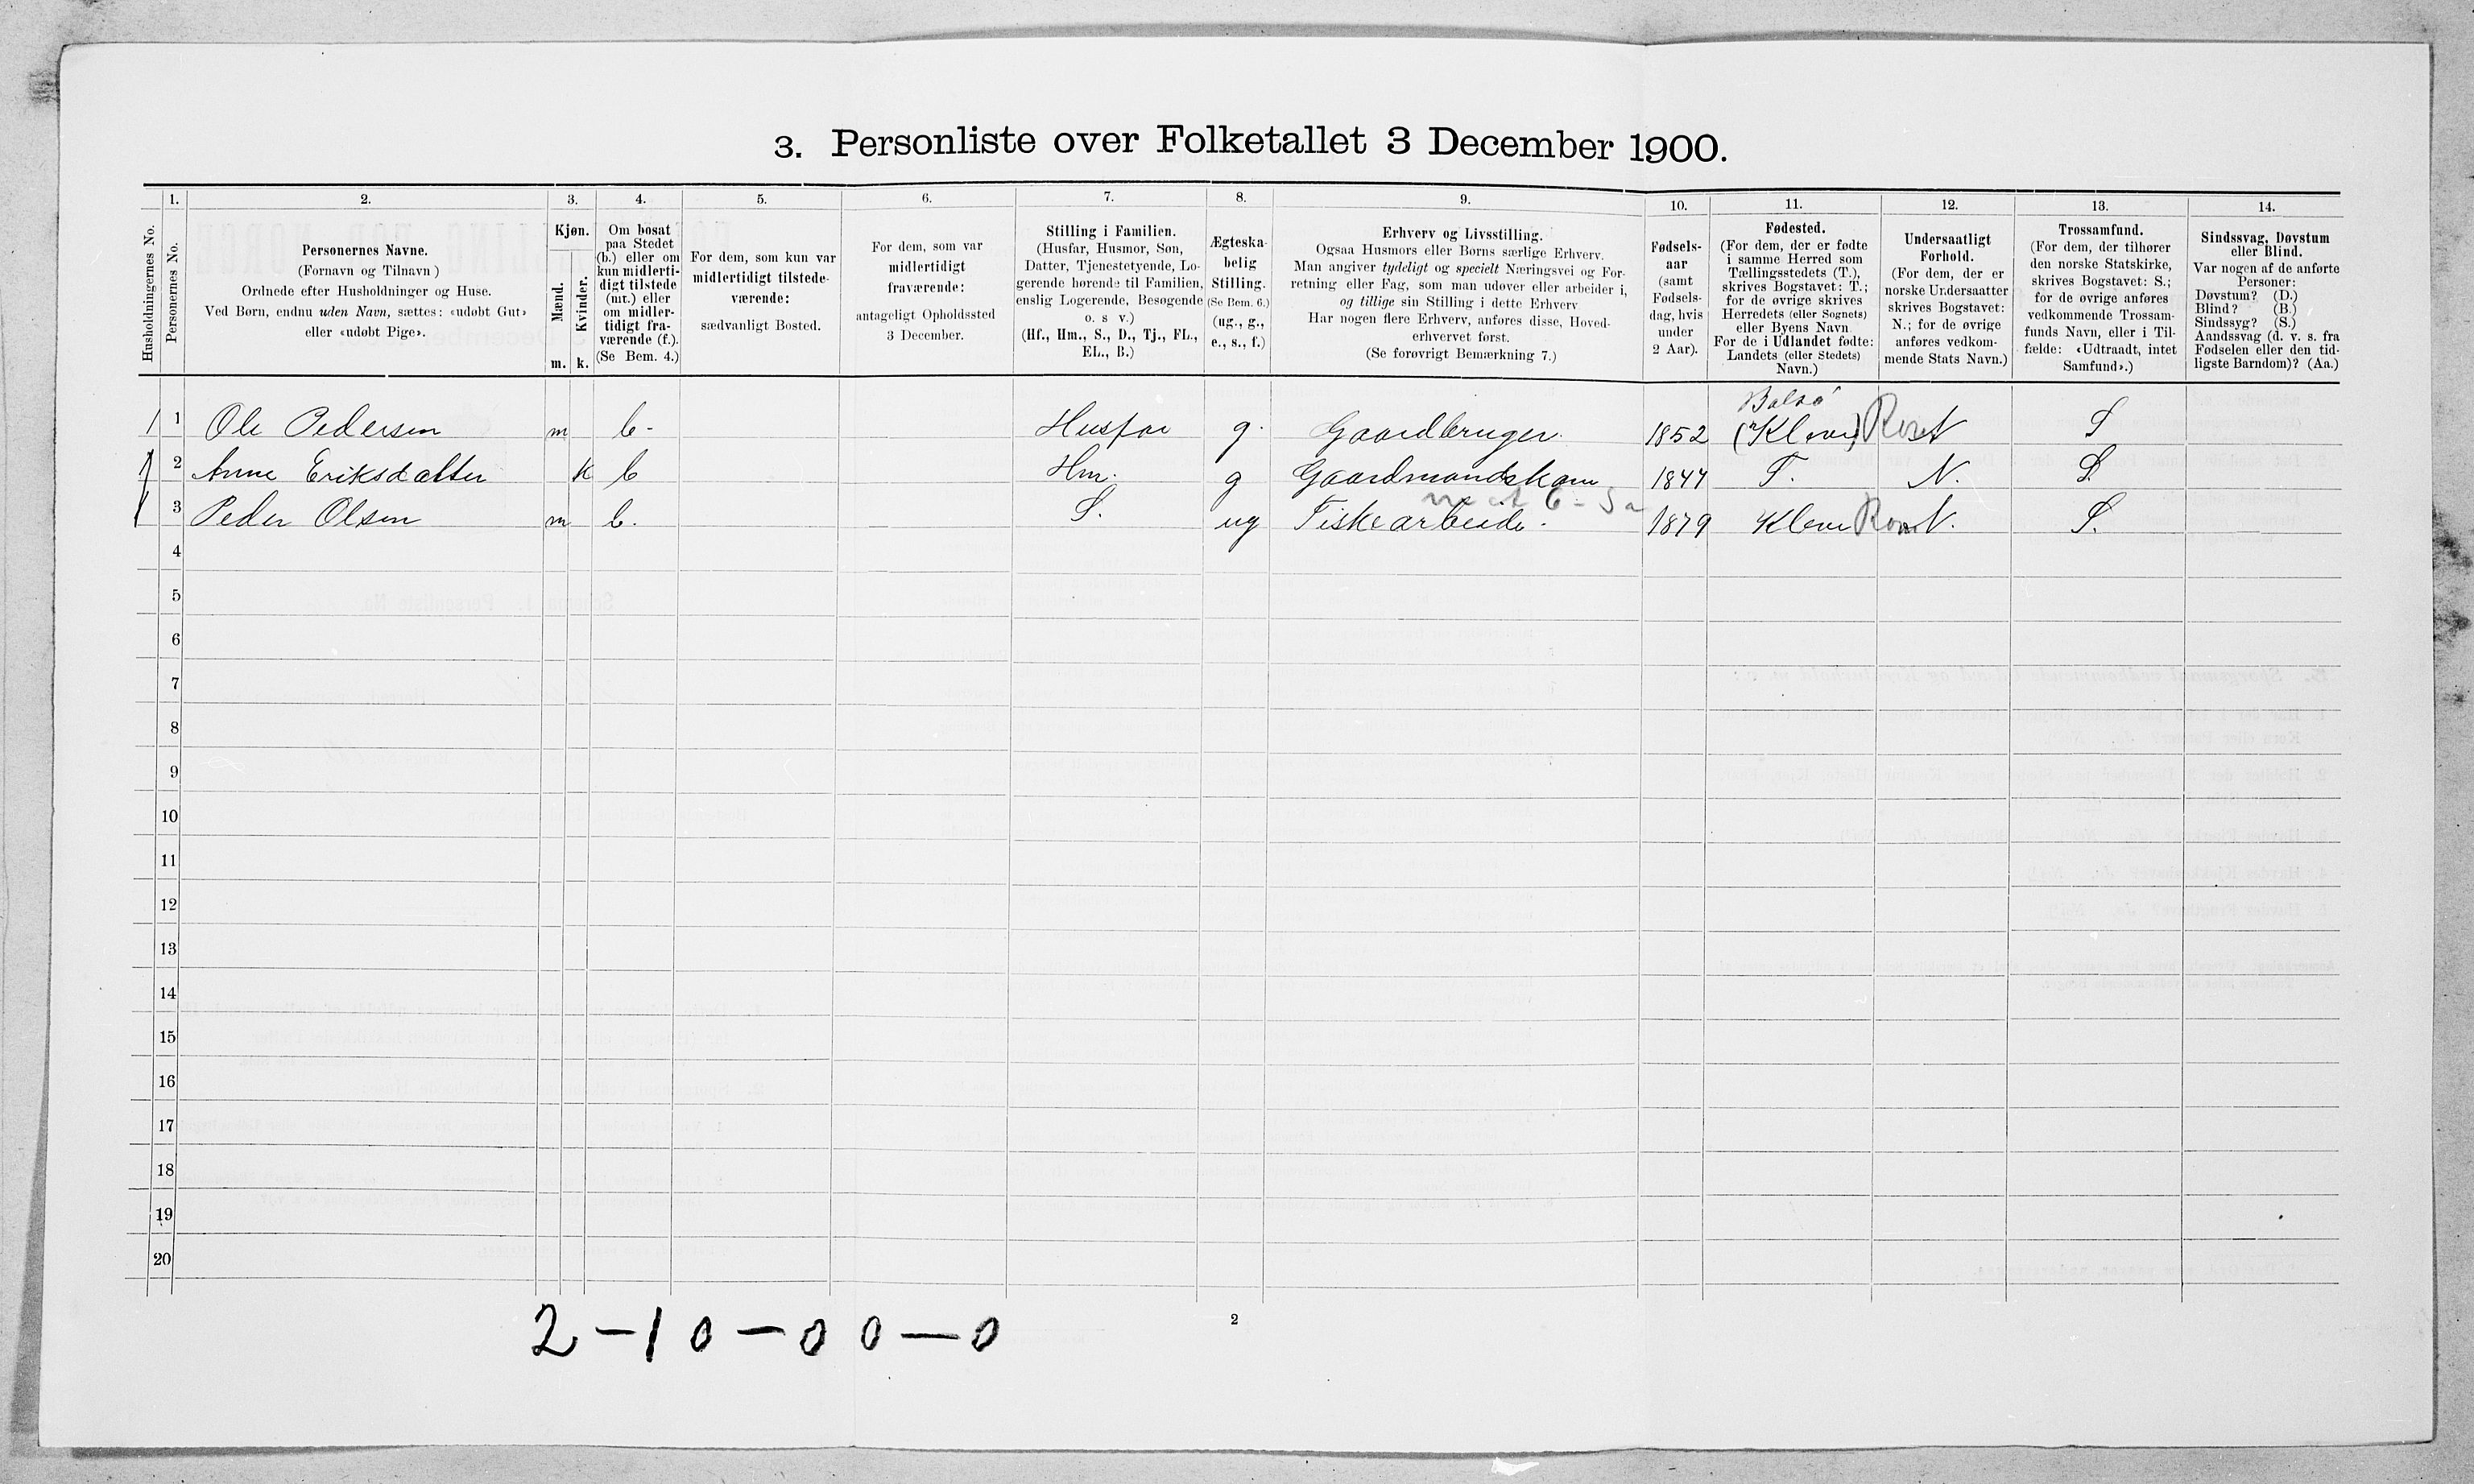 3. Personliste over Folketallet 3 December 1900.
Husholdningernes No.
1.
Personernes No.
2.
Personernes Navne.
(Fornavn og Tilnavn)
Ordnede efter Husholdninger og Huse.
Ved Børn, endnu uden Navn, sættes: «udøbt Gut»
eller «udøbt Pige».
3.
Kjøn.
Mænd.
Kvinder.
m. k.
4.
Om bosat
paa Stedet
(b.) eller om
kun midlerti-
digt tilstede
(mt.) eller
om midler-
tidigt fra-
værende (f.).
(Se Bem. 4.)
5.
For dem, som kun var
midlertidigt tilstede-
værende:
sædvanligt Bosted.
6.
For dem, som var
midlertidigt
fraværende:
antageligt Opholdssted
3 December.
7.
Stilling i Familien.
(Husfar, Husmor, Søn,
Datter, Tjenestetyende, Lo-
gerende hørende til Familien,
enslig Logerende, Besøgende
o. s v.)
(Hf., Hm., S., D., Tj., FL.,
EL., B.)
8.
Ægteska-
belig
Stilling.
(Se Bem. 6.)
(ug., g.,
e., s., f.)
9.
Erhverv og Livsstilling.
Ogsaa Husmors eller Børns særlige Erhverv.
Man angiver tydeligt og specielt Næringsvei og For-
retning eller Fag, som man udøver eller arbeider i,
og tillige sin Stilling i dette Erhverv
Har nogen flere Erhverv, anføres disse, Hoved-
erhvervet først.
(Se forøvrigt Bemærkning 7.)
10.
Fødsels-
aar
(samt
Fødsels-
dag, hvis
under
2 Aar).
11.
Fødested.
(For dem, der er fødte
i samme Herred som
Tællingsstedets (T.),
skrives Bogstavet: T.;
for de øvrige skrives
Herredets (eller Sognets)
eller Byens Navn
For de i Udlandet fødte:
Landets (eller Stedets)
Navn.)
12.
Undersaatligt
Forhold.
(For dem, der er
norske Undersaatter
skrives Bogstavet:
N.; for de øvrige
anføres vedkom-
mende Stats Navn.)
13.
Trossamfund.
(For dem, der tilhører
den norske Statskirke,
skrives Bogstavet: S.;
for de øvrige anføres
vedkommende Trossam-
funds Navn, eller i Til-
fælde: «Udtraadt, intet
Samfund».)
14.
Sindssvag, Døvstum
eller Blind.
Var nogen af de anførte
Personer:
Døvstum? (D.)
Blind? (B.)
Sindssyg? (S.)
Aandssvag (d. v. s. fra
Fødselen eller den tid-
ligste Barndom)? (Aa.)
1 1 Ole Pedersen m b. Husfar g. Gaardbruger. 1852 N S
2 Anne Eriksdatter k b Hm. g Gaardmandskone 1847 T. N. S.
3 Peder Olsen m b. S. ug Fiskearbeide. 1879 N. S.
4
5
6
7
8
9
10
11
12
13
14
15
16
17
18
19
20
2 - 10 - 00 - 0
2